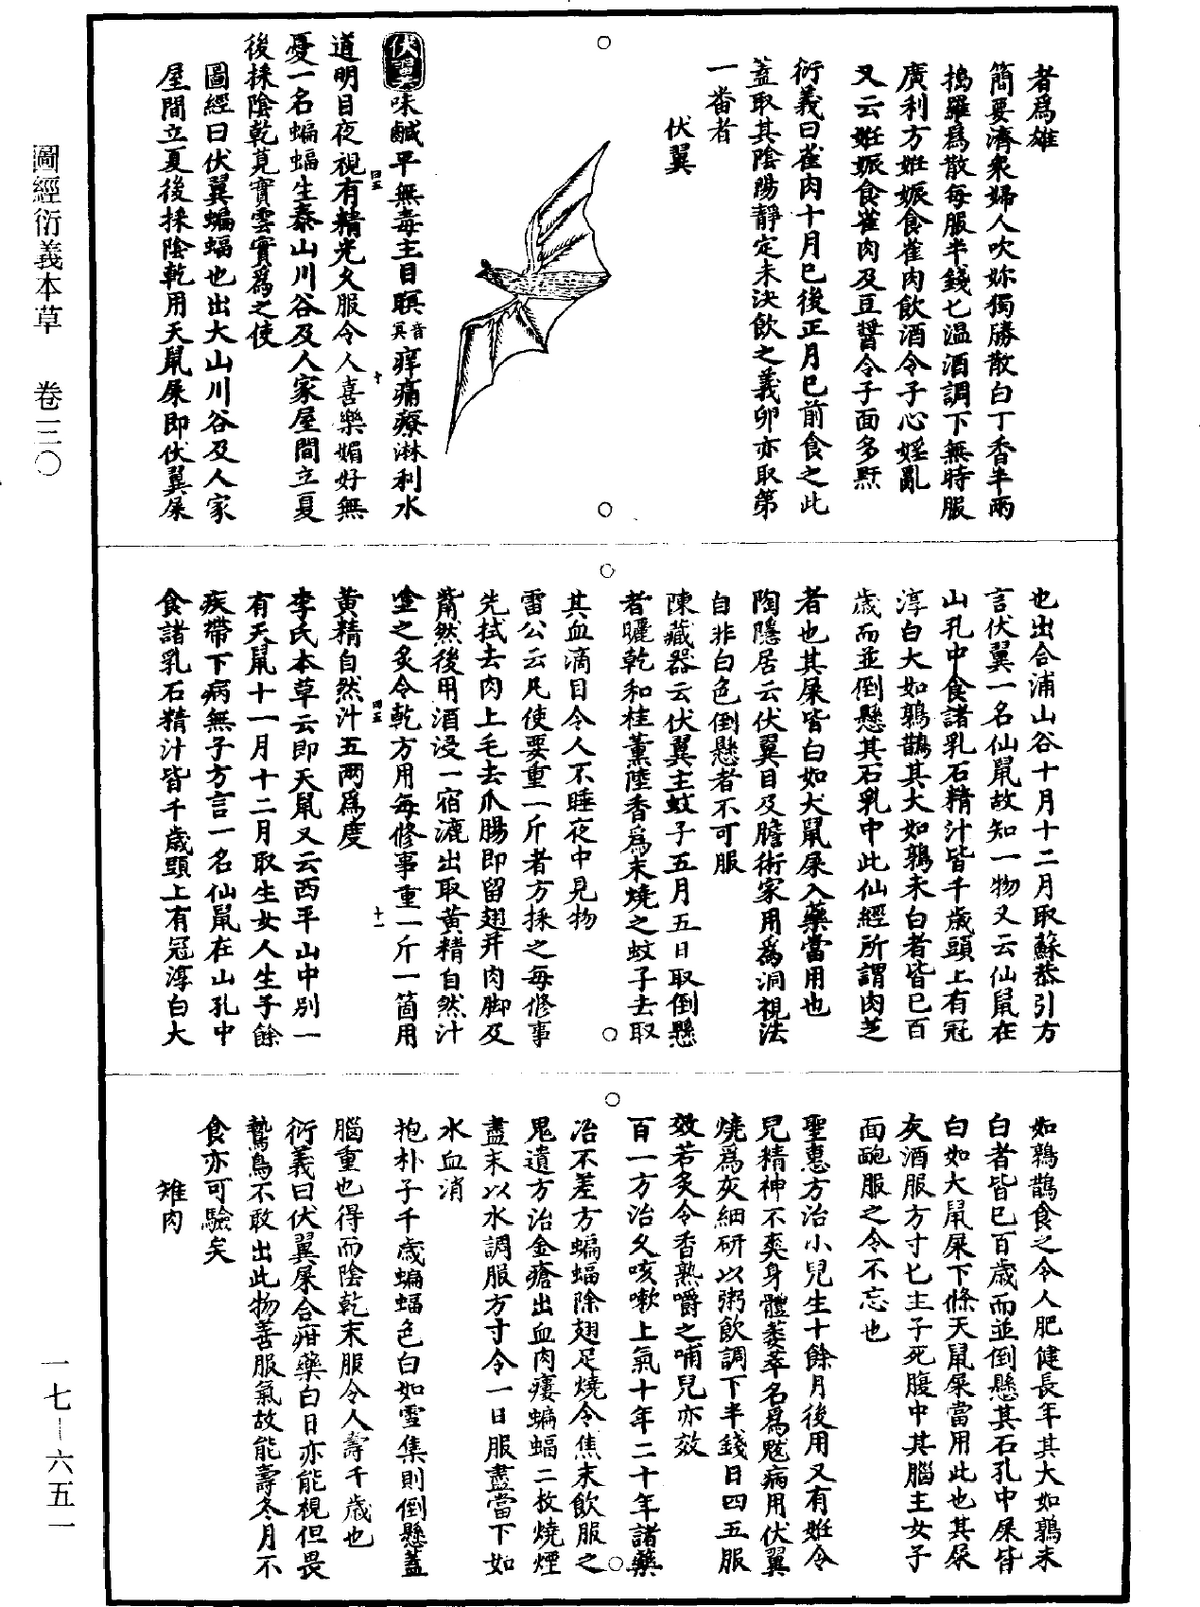 圖經衍義本草　卷三〇
者爲雄
簡要濟衆婦人吹妳獨勝散白丁香半兩
搗羅爲散每服半錢匕温酒調下無時服
廣利方姙娠食雀肉飲酒令子心婬亂
又云姙娠食雀肉及豆醬令子面多䵟
衍義曰雀肉十月已後正月已前食之此
蓋取其陰陽靜定未決飲之義卵亦取第
一番者
伏翼
伏翼味鹹平無毒主目瞑音冥痒痛療淋利水
道明目夜視有精光久服令人喜樂媚好無
憂一名蝙蝠生泰山川谷及人家屋間立夏
後採陰乾莧實雲實爲之使
圖經曰伏翼蝙蝠也出大山川谷及人家
屋間立夏後採陰乾用天鼠屎即伏翼屎
四五
十
也出合浦山谷十月十二月取蘇恭引方
言伏翼一名仙鼠故知一物又云仙鼠在
山孔中食諸乳石精汁皆千歲頭上有冠
淳白大如鶉鵲其大如鶉未白者皆已百
歲而並倒懸其石乳中此仙經所謂肉芝
者也其屎皆白如大鼠屎入藥當用也
陶隱居云伏翼目及膽術家用爲洞視法
自非白色倒懸者不可服
陳藏器云伏翼主蚊子五月五日取倒懸
者曬乾和桂薰陸香爲末燒之蚊子去取
其血滴目令人不睡夜中見物
雷公云凡使要重一斤者方採之每修事
先拭去肉上毛去爪腸即留翅并肉脚及
觜然後用酒浸一宿漉出取黃精自然汁
塗之炙令乾方用每修事重一斤一箇用
黃精自然汁五兩爲度
李氏本草云即天鼠又云西平山中別一
有天鼠十一月十二月取生女人生子餘
疾帶下病無子方言一名仙鼠在山孔中
食諸乳石精汁皆千歲頭上有冠淳白大
四五
十一
如鶉鵲食之令人肥健長年其大如鶉未
白者皆已百歲而並倒懸其石孔中屎皆
白如大鼠屎下條天鼠屎當用此也其屎
灰酒服方寸匕主子死腹中其腦主女子
面皰服之令不忘也
聖惠方治小兒生十餘月後用又有姙令
兒精神不爽身體萎萃名爲鬾病用伏翼
燒爲灰細研以粥飲調下半錢日四五服
效若炙令香熟嚼之哺兒亦效
百一方治久咳嗽上氣十年二十年諸藥
冶不差方蝙蝠除翅足燒令焦末飲服之
鬼遺方治金瘡出血肉瘻蝙蝠二枚燒煙
盡末以水調服方寸令一日服盡當下如
水血消
抱朴子千歲蝙蝠色白如雪集則倒懸蓋
腦重也得而陰乾末服令人壽千歲也
衍義曰伏翼屎合疳藥白日亦能視但畏
鷙鳥不敢出此物善服氣故能壽冬月不
食亦可驗矣
雉肉
一七—六五一